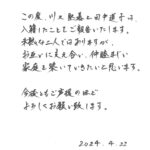 この度、川又聖磨と田中道子は、
入籍したことをご報告いたします。
未熟な二人ではありますが、
お互いに支え合い、仲睦まじい
家庭を築いていきたいと思います。
今後ともご声援のほど
よろしくお願い致します。
2024.4.22